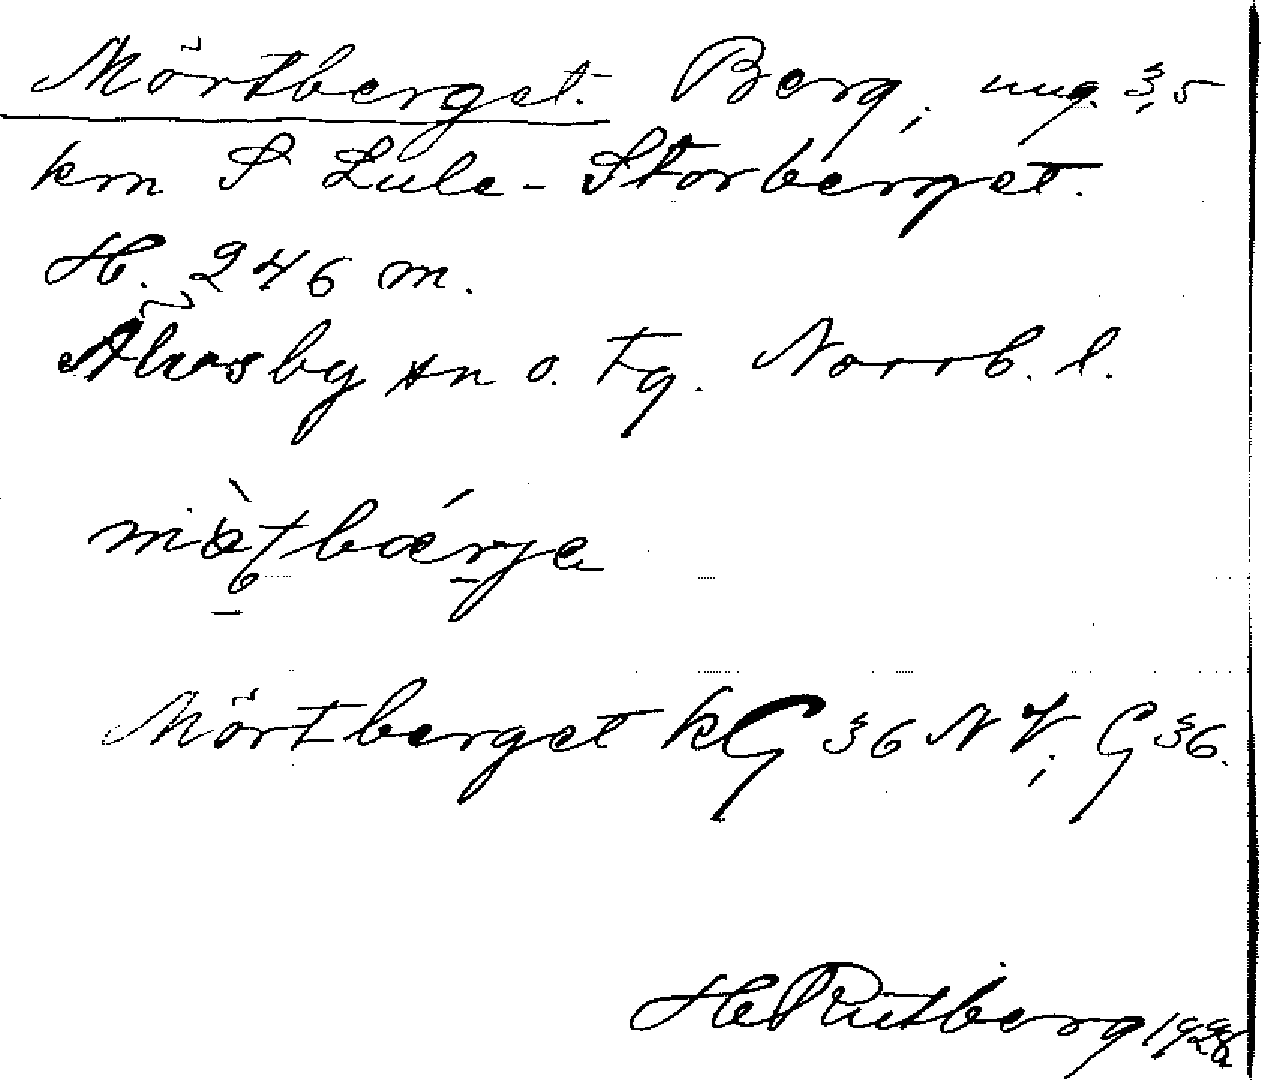 Mörtberget. Berg, ung. 3,5
km S Lule-Storberget.
H. 246 m.
Älvsby sn o. tg. Norrb. l.
Mörtberget kG 36 NV; G 36.
H Rutberg 1928